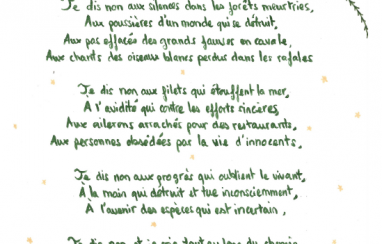 Je dis non aux silences dans les forêts meurtries,
Aux poussières d'un monde qui se détruit,
Aux pas effacés des grands fauves en cavale,
Aux chants des oiseaux blancs perdus dans les rafales
Je dis non aux filets qui étouffent la mer,
À l'avidité qui contre les efforts sincères,
Aux ailerons arrachés pour des restaurants,
Aux personnes obsédées par la vie d'innocents.
Je dis non aux progrès qui oublient le vivant,
À la main qui détruit et tue inconsciemment,
À l'avenir des espèces qui est incertain,
Je dis non et je